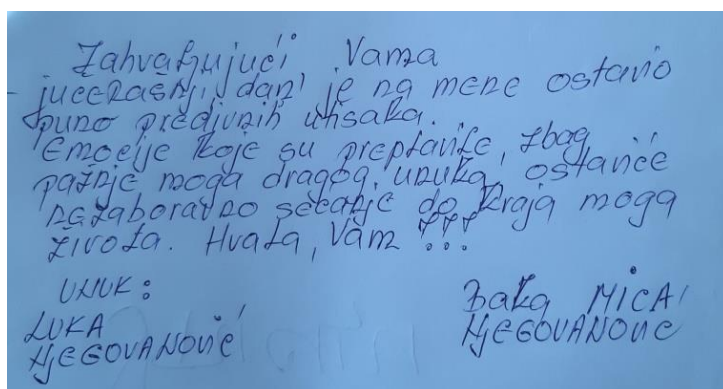 Zahvaljujući Vama
jučerašnji dan je na mene ostavio
puno predivnih utisaka.
Emocije koje su preplavile, zbog
pažnje moga dragog unuka, ostaviće
nezaboravno sećanje do kraja moga
života. Hvala Vam !!!
UNUK:
LUKA
NJEGOVANOVIĆ
Baka MICA
NJEGOVANOVIĆ